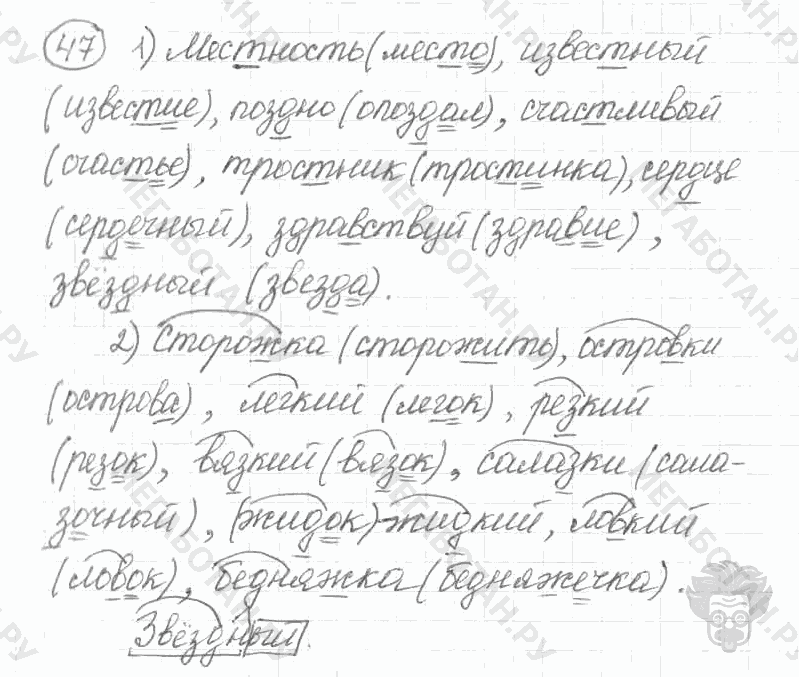 47 1) Местность (место), известный
(известие), поздно (опоздал), счастливый
(счастье), тростник (тростинка), сердце
(сердечный), здравствуй (здравие),
звёздный (звезда).
2) Сторожка (сторожить), островки
(острова), легкий (легок), резкий
(резок), вязкий (вязок), салазки (сала-
зочный), (жидок)-жидкий, ловкий
(ловок), бедняжка (бедняжечка).
Звёздный.
МЕГАБОТАН.РУ